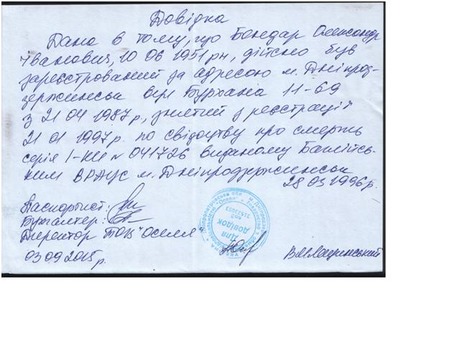 Довідка
Дана в тому, що Бондар Олександр
Іванович, 10 06 1951 рн, дійсно був
зареєстрований за адресою м. Дніпрод-
зержинськ вул Бурхана 11-69
з 21 04 1987 р, знятий з реєстрації
21 01 1997 р по свідоцтву про смерть
серія І-КИ № 041726 виданому
ким ВРАЦС м. Дніпродзержинськ
28 03 1996 р.
Паспортист:
Бухгалтер:
Директор ТОВ "Оселя"
ДЛЯ
ДОВІДОК
03 09 2015 р.